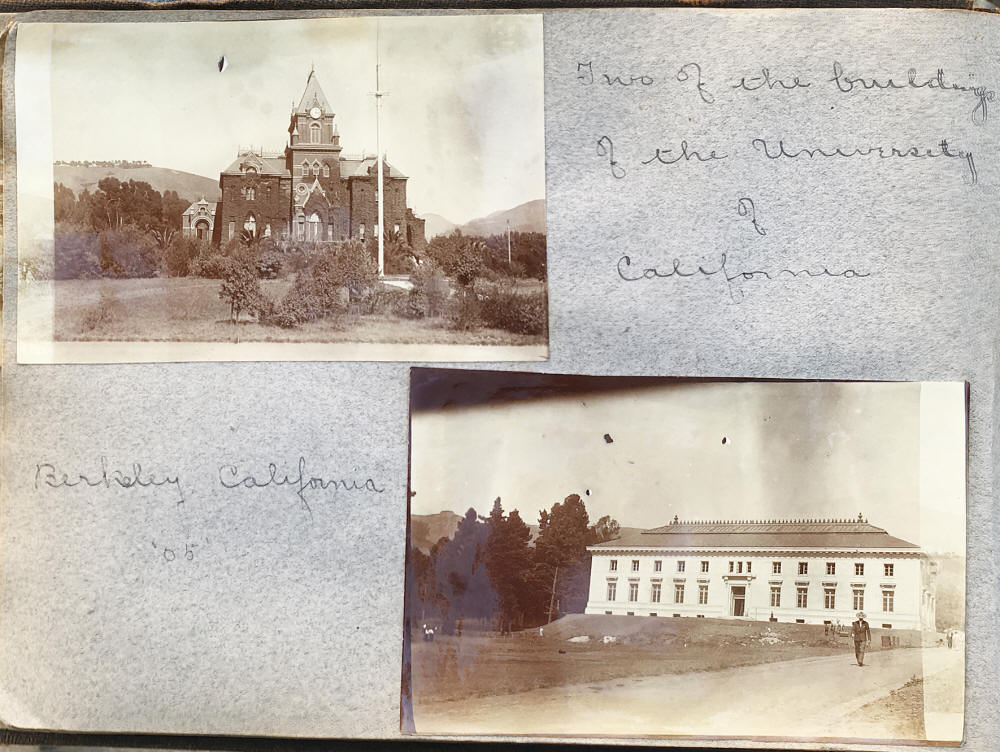 Two of the buildings
of the University
of
California
Berkley California
'05'